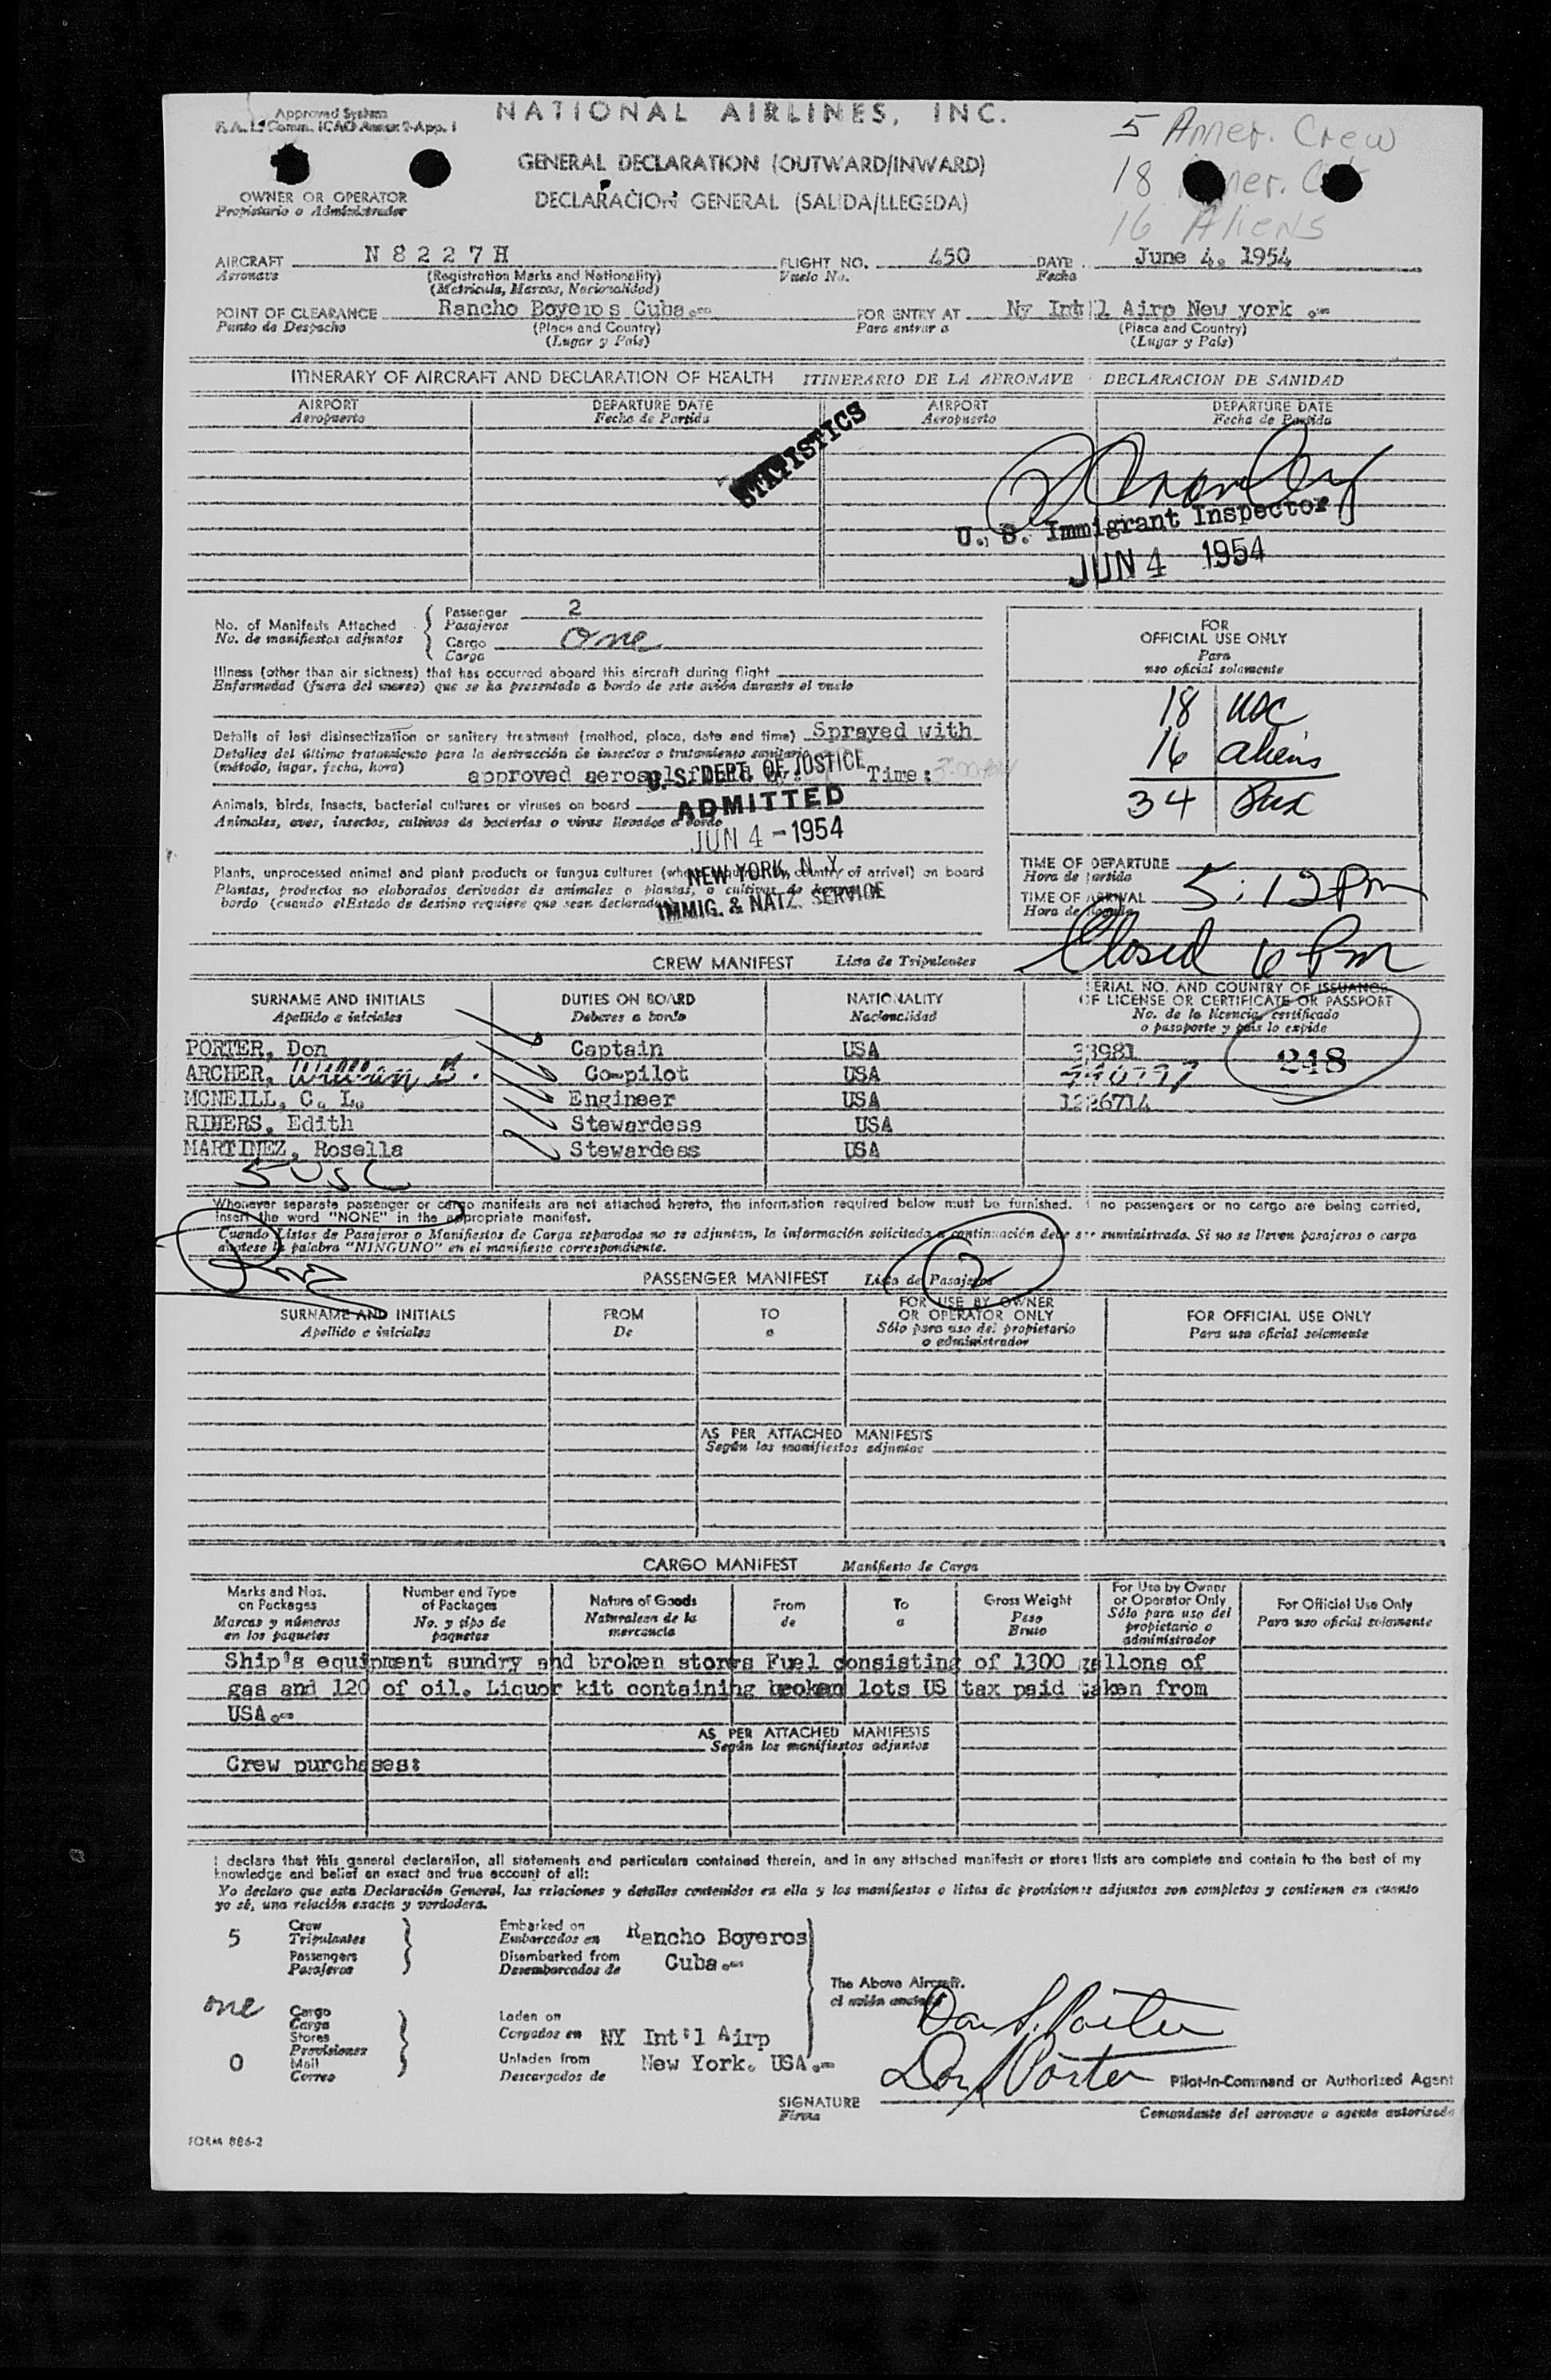 Approved System
F.A.L. Comm. ICAO Annex 9-App. 1
NATIONAL AIRLINES, INC.
5 Amer. Crew
18
16 Aliens
GENERAL DECLARATION (OUTWARD/INWARD)
DECLARACION GENERAL (SALIDA/LLEGEDA)
OWNER OR OPERATOR
Propietario o Administrador
AIRCRAFT N 8 2 2 7 H FLIGHT NO. 450 DATE June 4. 1954
Aeronave (Registration Marks and Nationality) Vuelo No. Fecha
(Matricula, Marcas, Nacionalidad)
POINT OF CLEARANCE Rancho Boyeros Cuba.- FOR ENTRY AT Ny Int'l Airp New york .-
Punto de Despacho (Place and Country) Para entrar a (Place and Country)
(Lugar y País) (Lugar y País)
ITINERARY OF AIRCRAFT AND DECLARATION OF HEALTH ITINERARIO DE LA AERONAVE DECLARACION DE SANIDAD
AIRPORT DEPARTURE DATE AIRPORT DEPARTURE DATE
Aeropuerto Fecha de Partida Aeropuerto Fecha de Partida
STATISTICS
U. S. Immigrant Inspector
JUN 4 1954
No. of Manifests Attached
No. de manifiestos adjuntos
Passenger 2
Pasajeros
Cargo one
Carga
Illness (other than air sickness) that has occurred aboard this aircraft during flight
Enfermedad (fuera del mareo) que se ha presentado a bordo de este avión durante el vuelo
Details of last disinsectization or sanitary treatment (method, place, date and time) Sprayed with
Detalles del último tratamiento para la destrucción de insectos o tratamiento sanitario
(método, lugar, fecha, hora)
approved aerosol Time:
U. S. DEPT. OF JUSTICE
ADMITTED
JUN 4 - 1954
NEW YORK, N. Y.
IMMIG. & NATZ. SERVICE
Animals, birds, insects, bacterial cultures or viruses on board
Animales, aves, insectos, cultivos de bacterias o virus llevados a bordo
Plants, unprocessed animal and plant products or fungus cultures (when country of arrival) on board
Plantas, productos no elaborados derivados de animales o plantas, o cultivos de
bordo (cuando elEstado de destino requiere que sean declarados)
FOR
OFFICIAL USE ONLY
Para
uso oficial solamente
18 USC
16 aliens
34 Pax
TIME OF DEPARTURE
Hora de partida
TIME OF ARRIVAL 5:12 Pm
Hora de llegada
Closed 6 Pm
CREW MANIFEST Lista de Tripulantes
SURNAME AND INITIALS DUTIES ON BOARD NATIONALITY SERIAL NO. AND COUNTRY OF ISSUANCE
Apellido e iniciales Deberes a bordo Nacionalidad OF LICENSE OR CERTIFICATE OR PASSPORT
No. de la licencia, certificado
o pasaporte y país lo expide
PORTER, Don Captain USA 33981
248
ARCHER, William B. Co-pilot USA
MCNEILL, C. L. Engineer USA 1226714
RINERS, Edith Stewardess USA
MARTINEZ, Rosella Stewardess USA
5 USC
Whenever separate passenger or cargo manifests are not attached hereto, the information required below must be furnished. If no passengers or no cargo are being carried,
insert the word "NONE" in the appropriate manifest.
Cuando Listas de Pasajeros o Manifiestos de Carga separados no se adjuntan, la información solicitada a continuación debe ser suministrada. Si no se llevan pasajeros o carga
anotese la palabra "NINGUNO" en el manifiesto correspondiente.
2
PASSENGER MANIFEST Lista de Pasajeros
SURNAME AND INITIALS FROM TO FOR USE BY OWNER FOR OFFICIAL USE ONLY
Apellido e iniciales De a OR OPERATOR ONLY Para uso oficial solamente
Sólo para uso del propietario
o administrador
AS PER ATTACHED MANIFESTS
Según los manifiestos adjuntos
CARGO MANIFEST Manifiesto de Carga
Marks and Nos. on Packages Number and Type of Packages Nature of Goods From To Gross Weight For Use by Owner or Operator Only For Official Use Only
Marcas y números en los paquetes No. y tipo de paquetes Naturaleza de la mercancía de a Peso Bruto Sólo para uso del propietario o administrador Para uso oficial solamente
Ship's equipment sundry and broken stores Fuel consisting of 1300 gallons of
gas and 120 of oil. Liquor kit containing broken lots US tax paid taken from
USA.-
AS PER ATTACHED MANIFESTS
Según los manifiestos adjuntos
Crew purchases:
I declare that this general declaration, all statements and particulars contained therein, and in any attached manifests or stores lists are complete and contain to the best of my
knowledge and belief an exact and true account of all:
Yo declaro que esta Declaración General, las relaciones y detalles contenidos en ella y los manifiestos o listas de provisiones adjuntos son completos y contienen en cuanto
yo sé, una relación exacta y verdadera.
5 Crew Embarked on Rancho Boyeros
Tripulantes Embarcados en
Passengers Disembarked from Cuba.-
Pasajeros Desembarcados de
The Above Aircraft.
el avión
one Cargo Laden on
Carga Cargados en NY Int'l Airp
Stores
Provisiones Unladen from New York. USA.-
0 Mail Descargados de
Correo
Don S. Porter
Don S Porter
Pilot-in-Command or Authorized Agent
SIGNATURE
Firma
Comandante del aeronave o agente autorizado
FORM 886-2